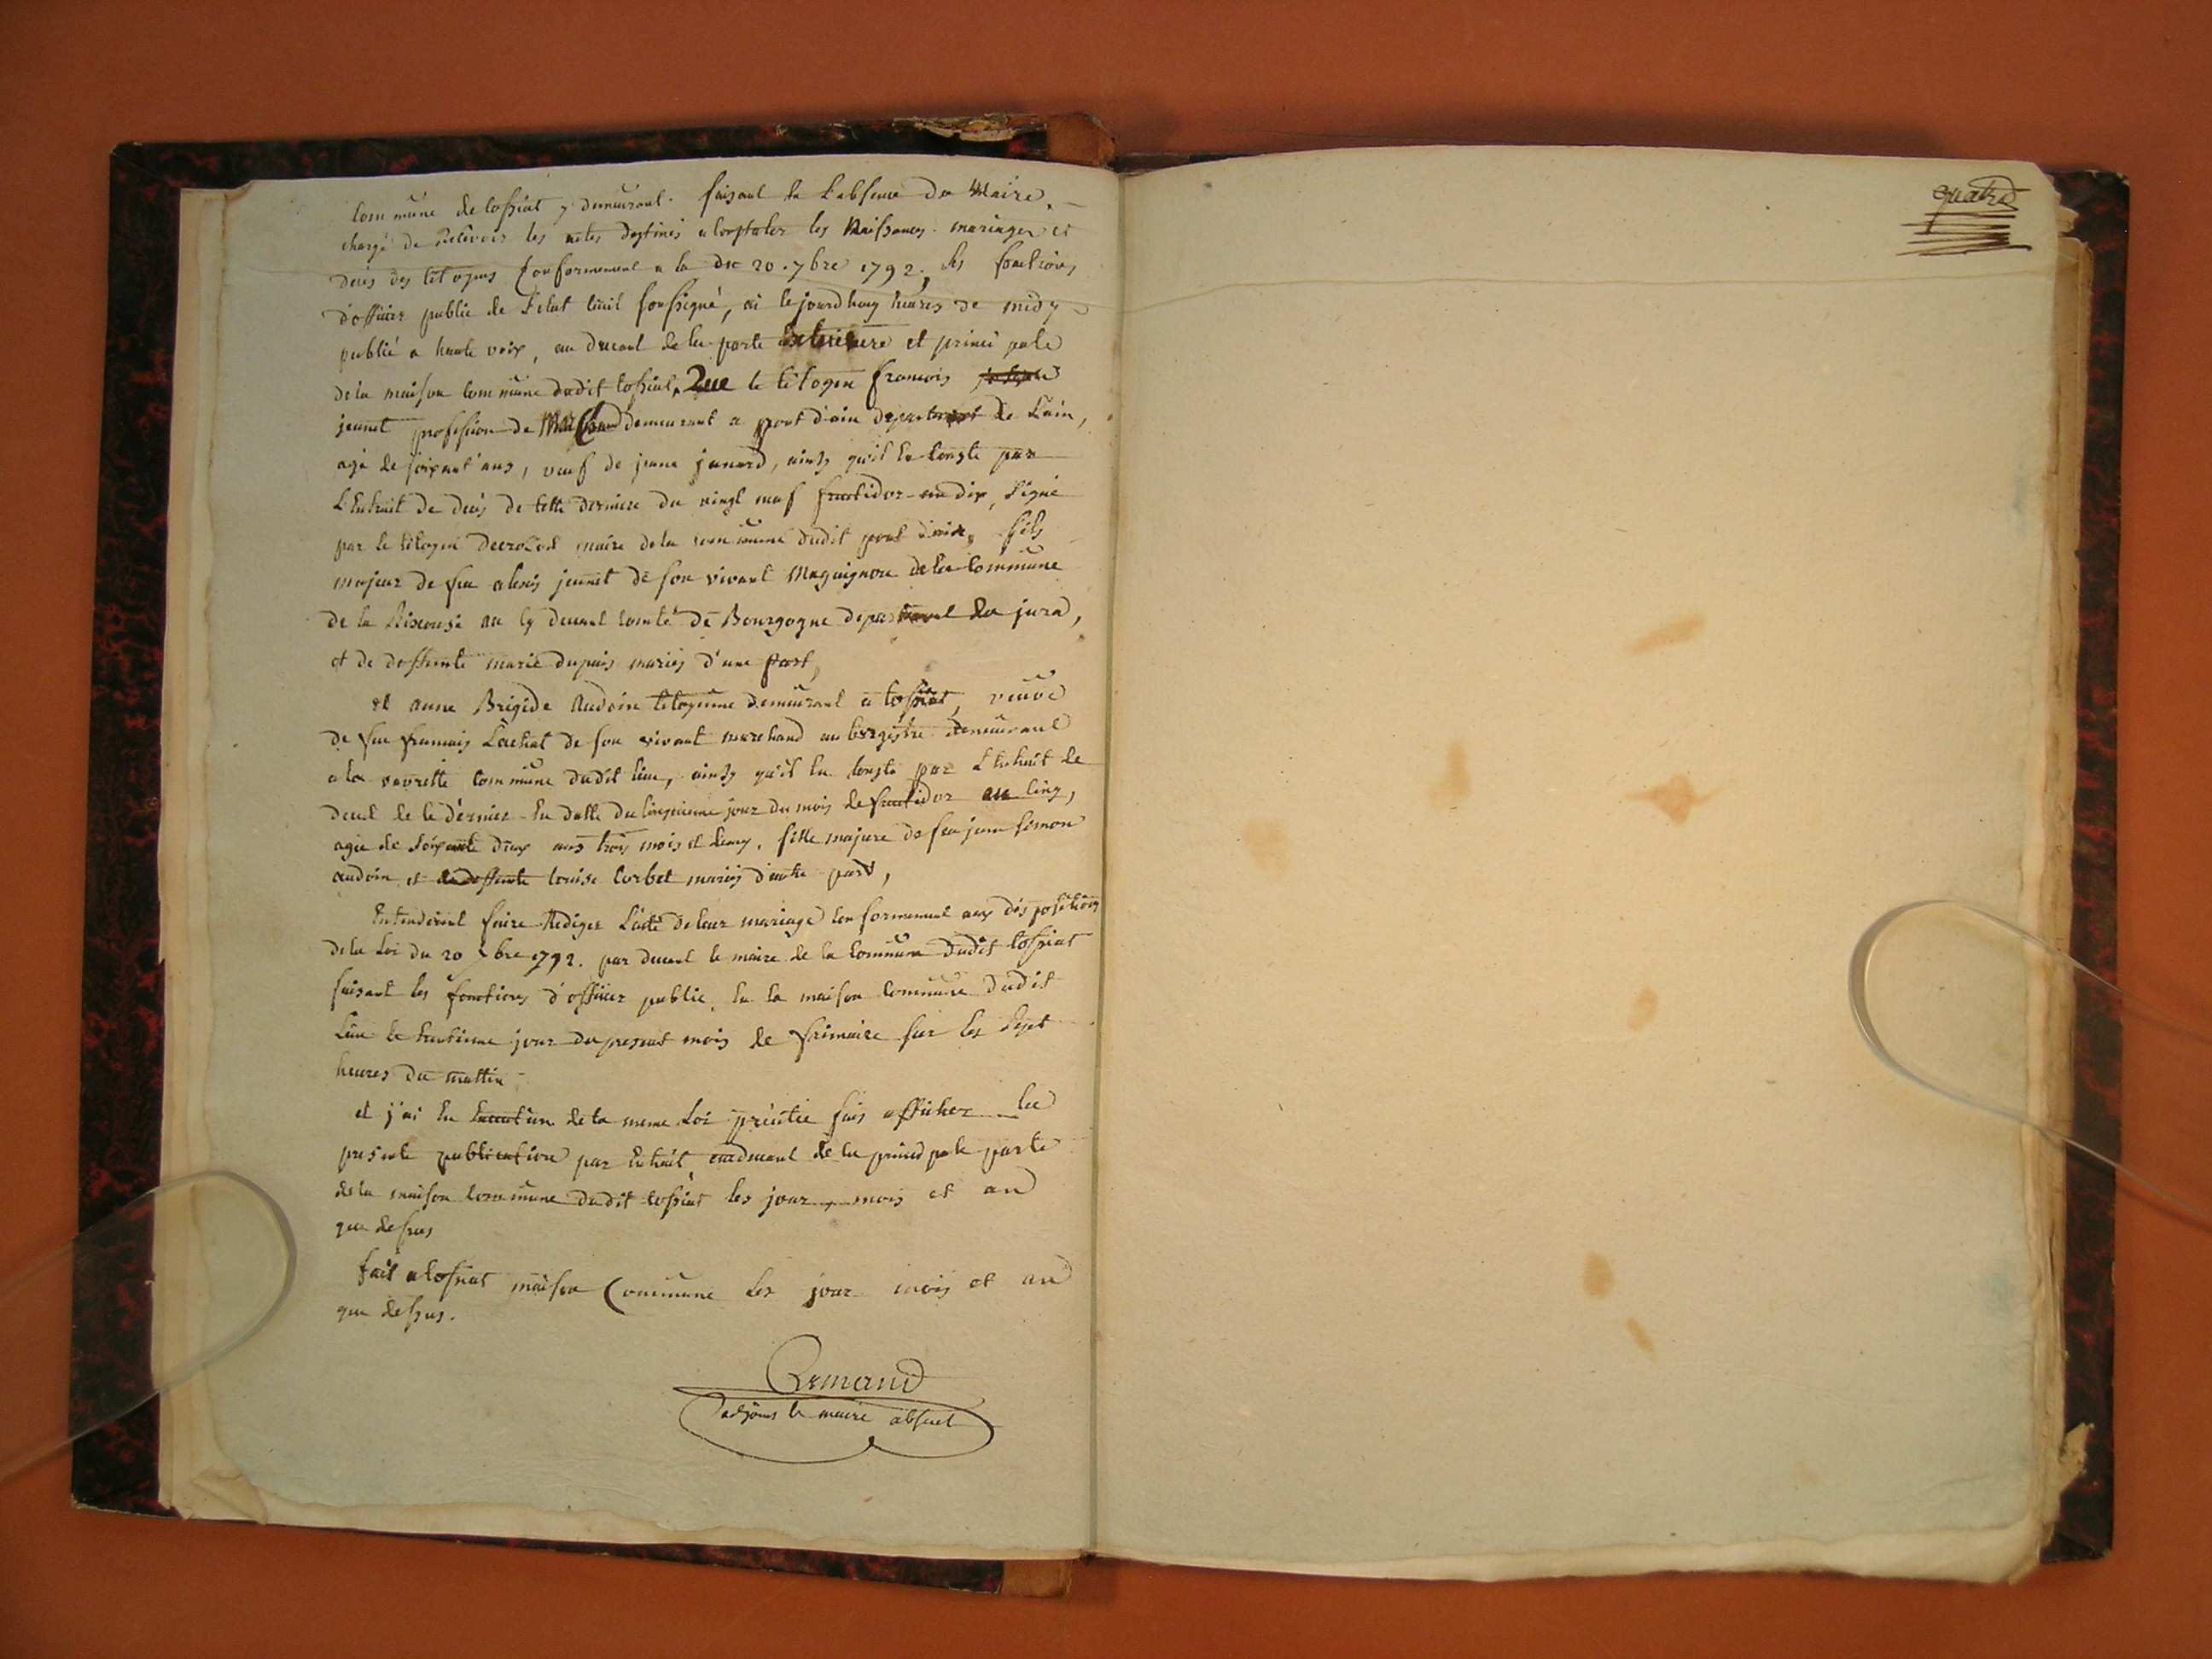 commune de tossiat y demeurant faisant en L'absence du Maire.
chargé de Recevoir les actes destinés a constater les Naissances mariages et
deces des citoyens Conformement a la du 20 7bre 1792, les fonctions
d'officier public de L'etat civil soussigné, ai cejourdhuy heures de midy
publié a haute voix, au devant de la porte exterieure et principale
de la maison commune dudit tossiat, Que le citoyen francois
jeunet profession de demeurant a pont d'ain departement de L'ain,
agé de soixant'ans, veuf de jeane janard, ainsy qu'il En conste par
L'Extrait de deces de cette derniere du vingt neuf fructidor an dix, signé
par le citoyen maire de la commune dudit pont d'ain, fils
majeur de feu alexis jeunet de son vivant Maquignon de la Commune
de la Rixouse au cy devant comté de Bourgogne departement du jura,
et de deffunte marie dupuis mariés d'une part,
et anne Brigide Audoin citoyenne demeurant a tossiat, veuve
de feu francois Lachat de son vivant marchand demeurant
a la vavrette commune dudit lieu, ainsy qu'il En conste par L'Extrait de
deces de ce dernier En datte du cinquieme jour du mois de fructidor an cinq,
agée de soixante deux ans trois mois et demy, fille majeure de feu jean simon
audoin et de deffunte Louise Corbet mariés d'autre part,
Entendoient faire Rediger L'acte de leur mariage conformement aux dispositions
de la Loi du 20 7bre 1792. par devant le maire de la Commune dudit tossiat
faisant les fonctions d'officier public, En la maison commune dudit
Lieu le trentieme jour du present mois de frimaire sur les sept
heures du mattin
et j'ai En Execution de la meme Loi précitée fais afficher la
presente publication par Extrait, audevant de la principale porte
de la maison commune dudit tossiat les jour, mois et an
que dessus
fait a tossiat maison Commune les jour mois et an
que dessus.
adjoint le maire absent
quatre